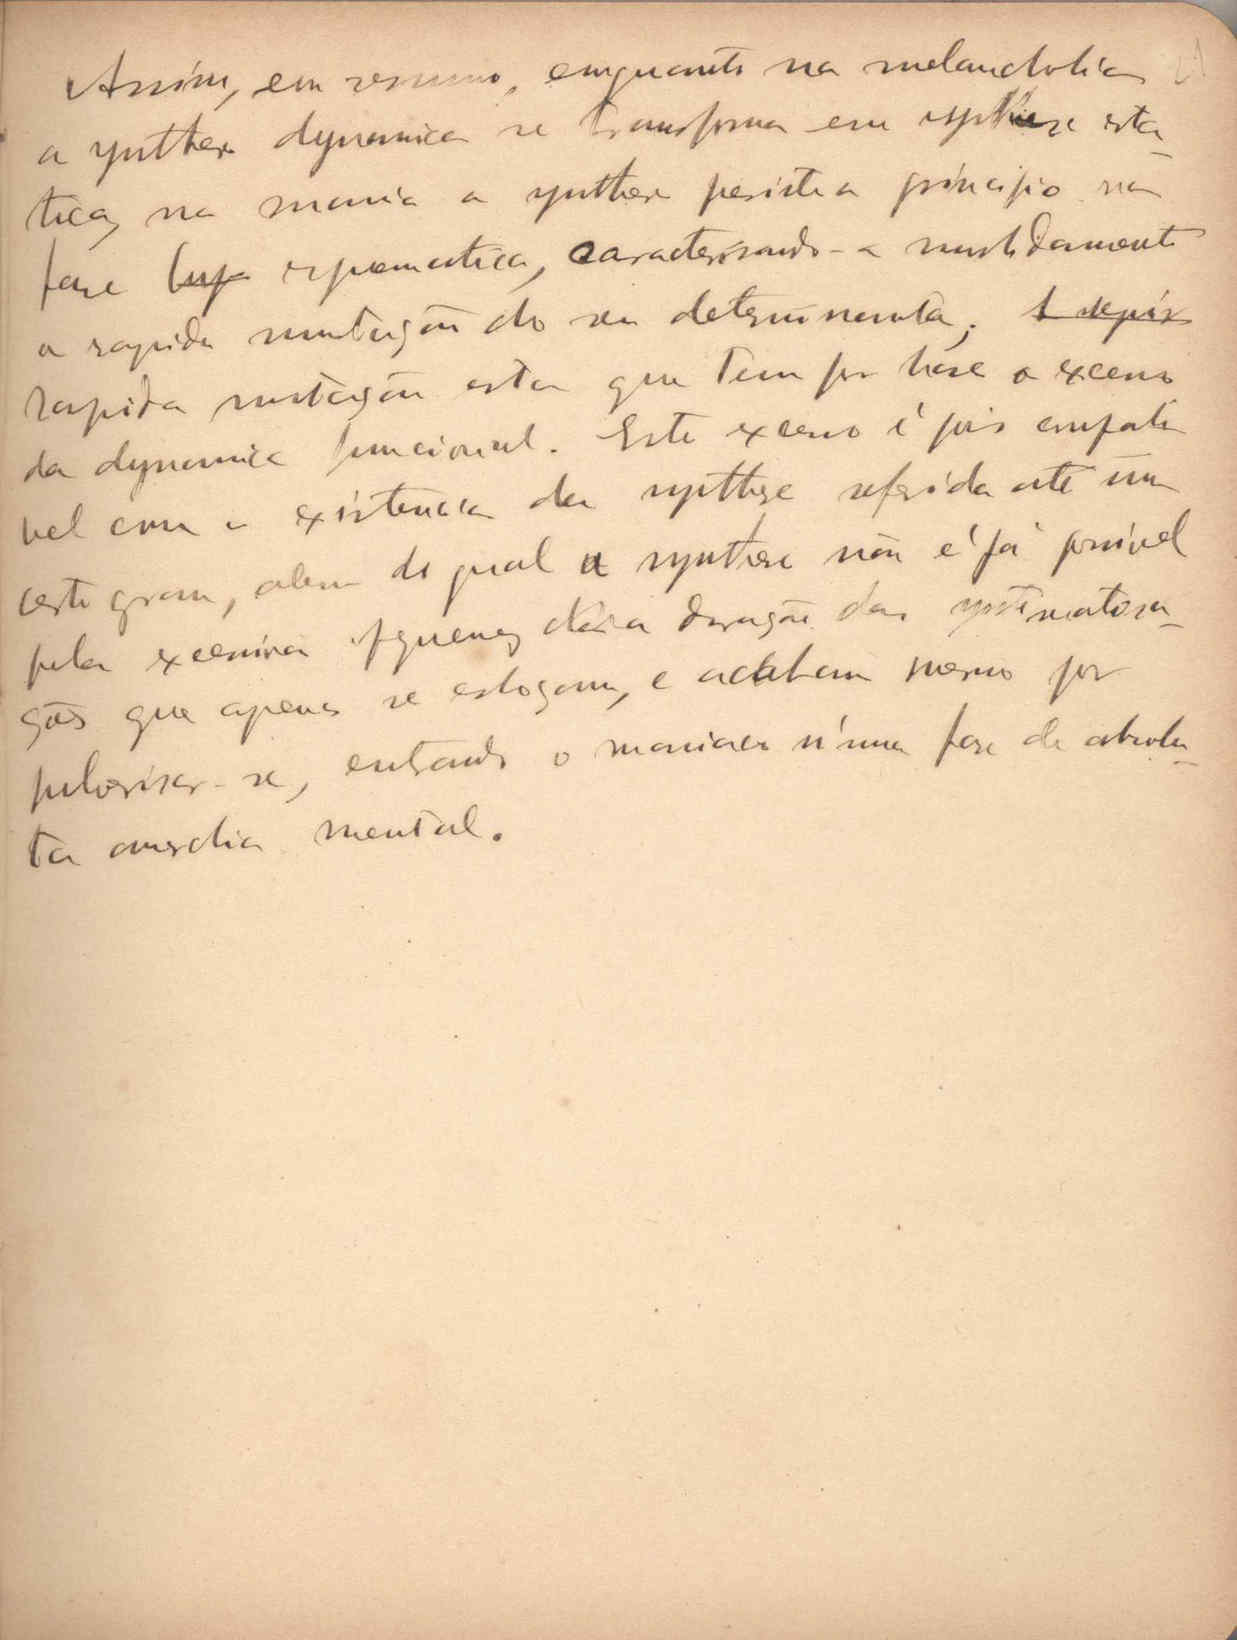 Assim, em resumo, emquanto na melancholia
a synthese dynamica se transforma em synthese esta-
tica, na mania a synthese persiste a principio na
fase hypomaniaca, caracterisando-a
a rapida mutação do seu determinante.
rapida mutação esta que tem por base o excesso
da dynamica funcional. Este excesso é pois compati
vel com a existencia da synthese referida até um
certo grau, alem do qual a synthese não é já possivel
pela excessiva pequenez da duração das systematisa-
ções que apenas se esboçam, e acabam mesmo por
pulverisar-se, entrando o maniaco n'uma fase de absolu-
ta anarchia mental.